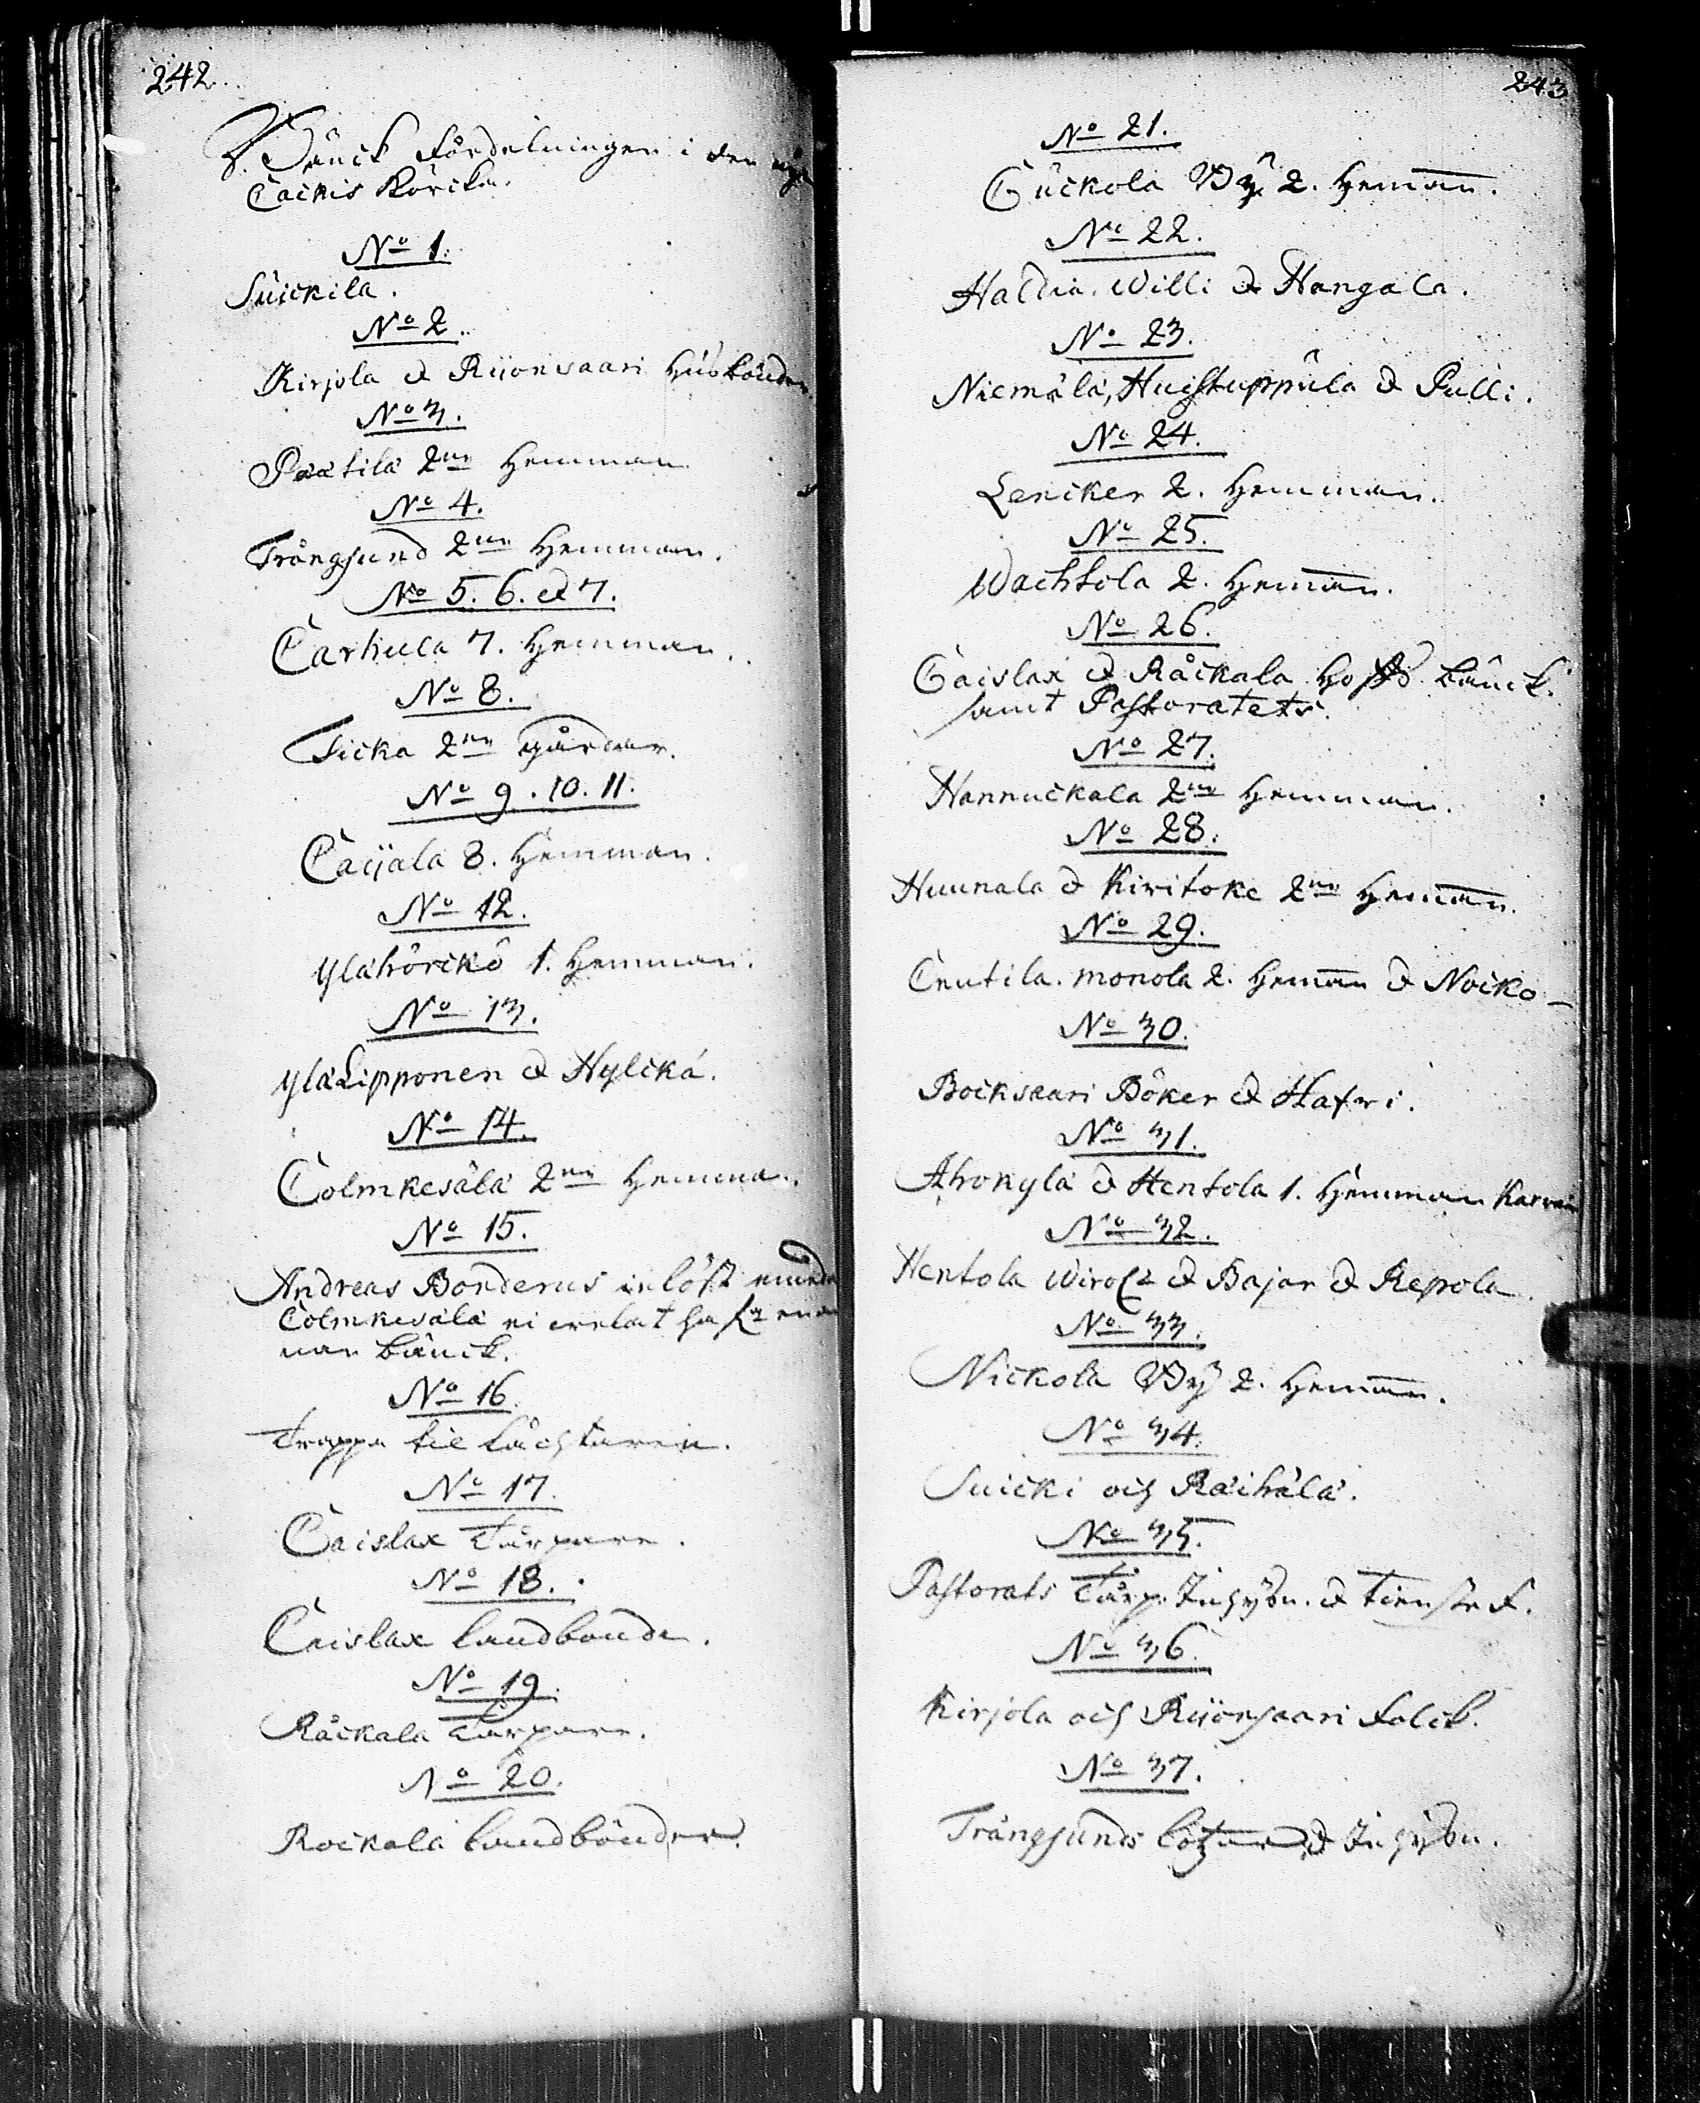 242.
Bänck Fördelningen i den nÿa
Cackis Kÿrcka.
No 1.
Suickila.
No 2.
Kirjola & Rÿonsaari Husbönder
No 3.
Päätilä 2ne Hemman
No 4.
Trångsund 2ne Hemman.
No 5. 6. & 7.
Carhula 7. Hemman.
No 8.
Sicka 2ne gårdar.
No 9. 10. 11.
Caijala 8. Hemman.
No 12.
Ylähörckö 1. Hemman.
No 13.
Ylälipponen & Hylckä.
No 14.
Colmkesälä 2ne Hemman.
No 15.
Andreas Bonderus inlöst
Colmkesälä ei welat haft
nan bänck.
No 16.
Trappa til Lächtaren.
No 17.
Caislax Tårpare.
No 18.
Caislax landbönde.
No 19.
Råckala Tårpare.
No 20.
Rockala landbönder.
243
No 21.
Cuckola Bÿ 2. Hemman.
No 22.
Haldia. Willi & Hangala.
No 23.
Niemälä, Huistuppula & Pulli.
No 24.
Lencker 2. Hemman.
No 25.
Wachtola 2. Hemman.
No 26.
Caislax & Råckala Hofs bänck.
samt Pastoratets.
No 27.
Hannuckala 2ne Hemman.
No 28.
Huunala & Kiritoke 2ne Hemman.
No 29.
Cautila. Monola 2. Heman & Nocko-
No 30.
Bocksaari Böker & Hafri.
No 31.
Ahokylä & Hentola 1. Hemman Karvain
No 32.
Hentola Wirolz & Bajar & Repola.
No 33.
Nickola Bÿ 2. Hemman.
No 34.
Suicki och Räihälä.
No 35.
Pastorats Tårp. Inhysn. & Tienste F.
No 36.
Kirjola och Rÿonsaari Folck.
No 37.
Trångsunds Lotzar & Inhysn.